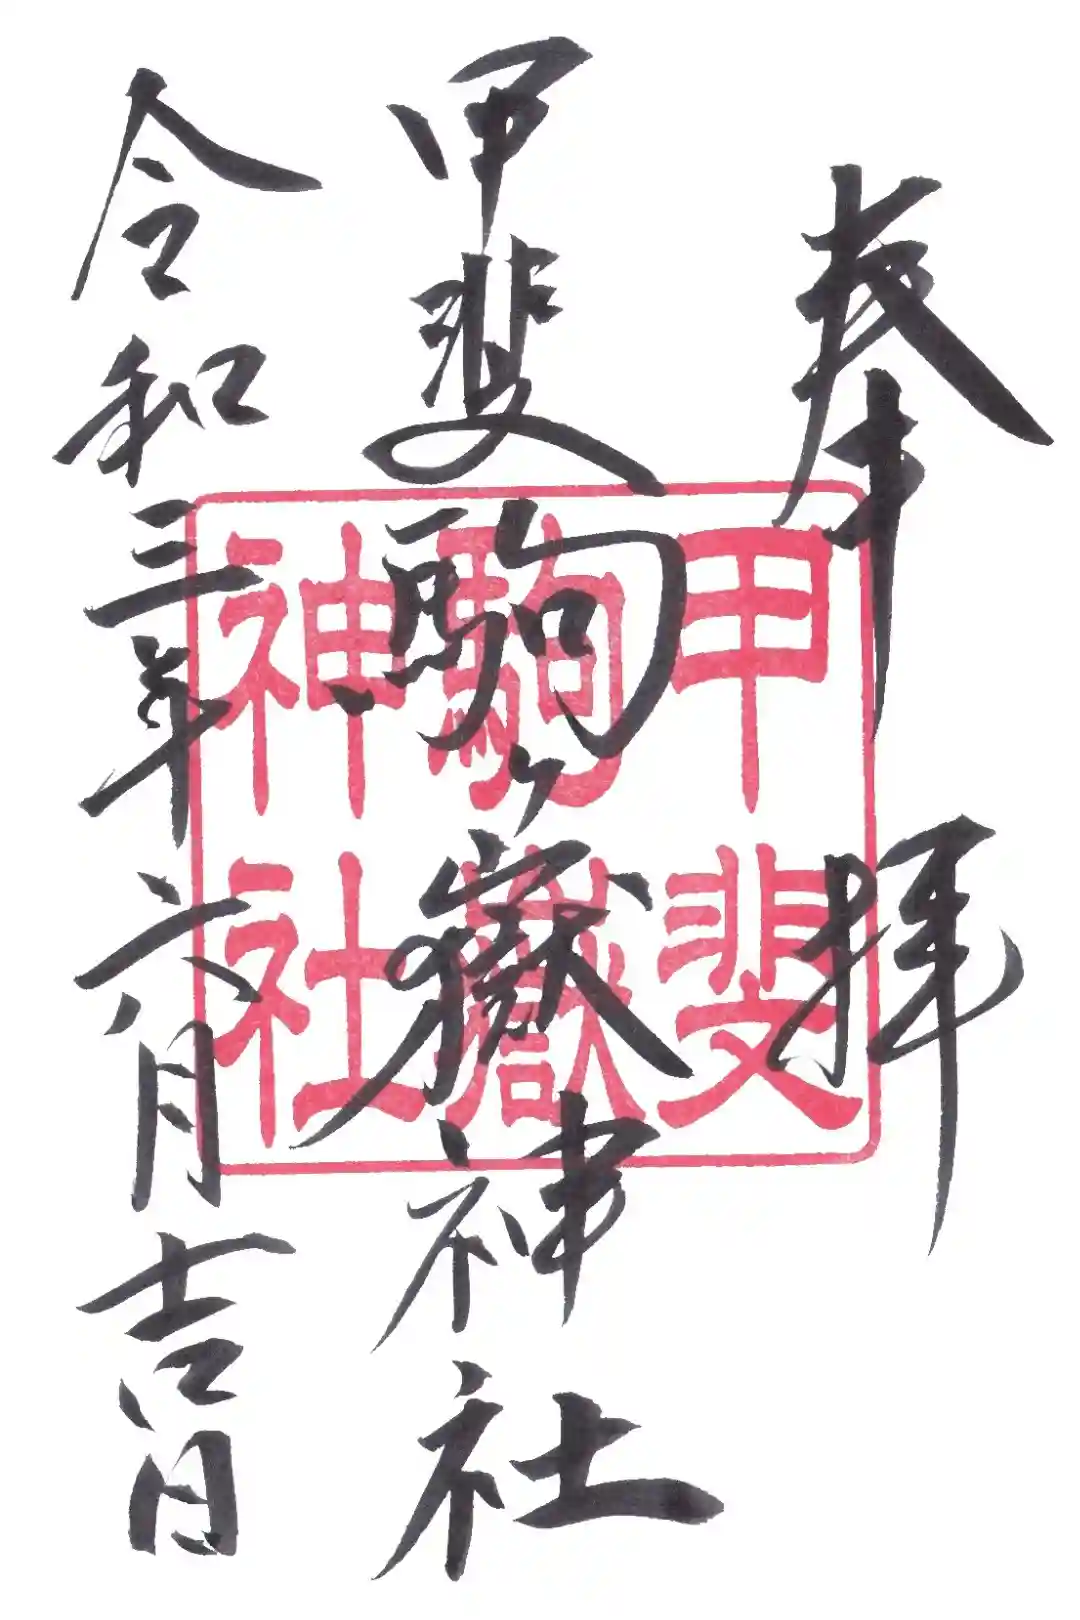 奉拝
甲斐駒ヶ嶽神社
令和三年六月吉日
甲斐
駒嶽
神社